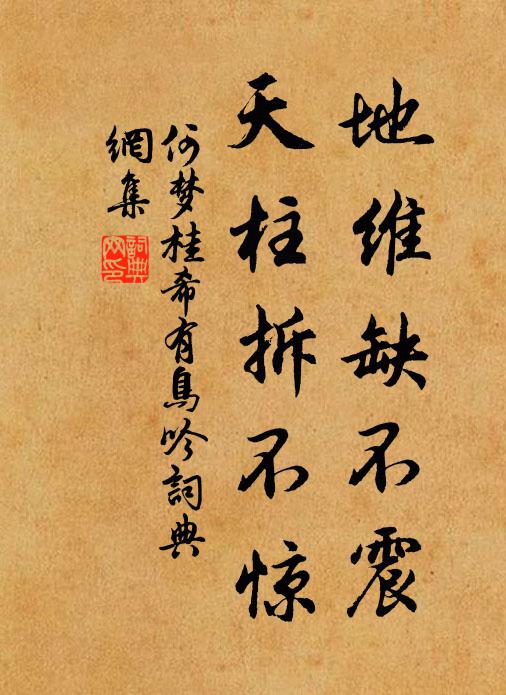 地维缺不震
天柱拆不惊
何梦桂希有鳥吟詞典
網集
詞典
网印